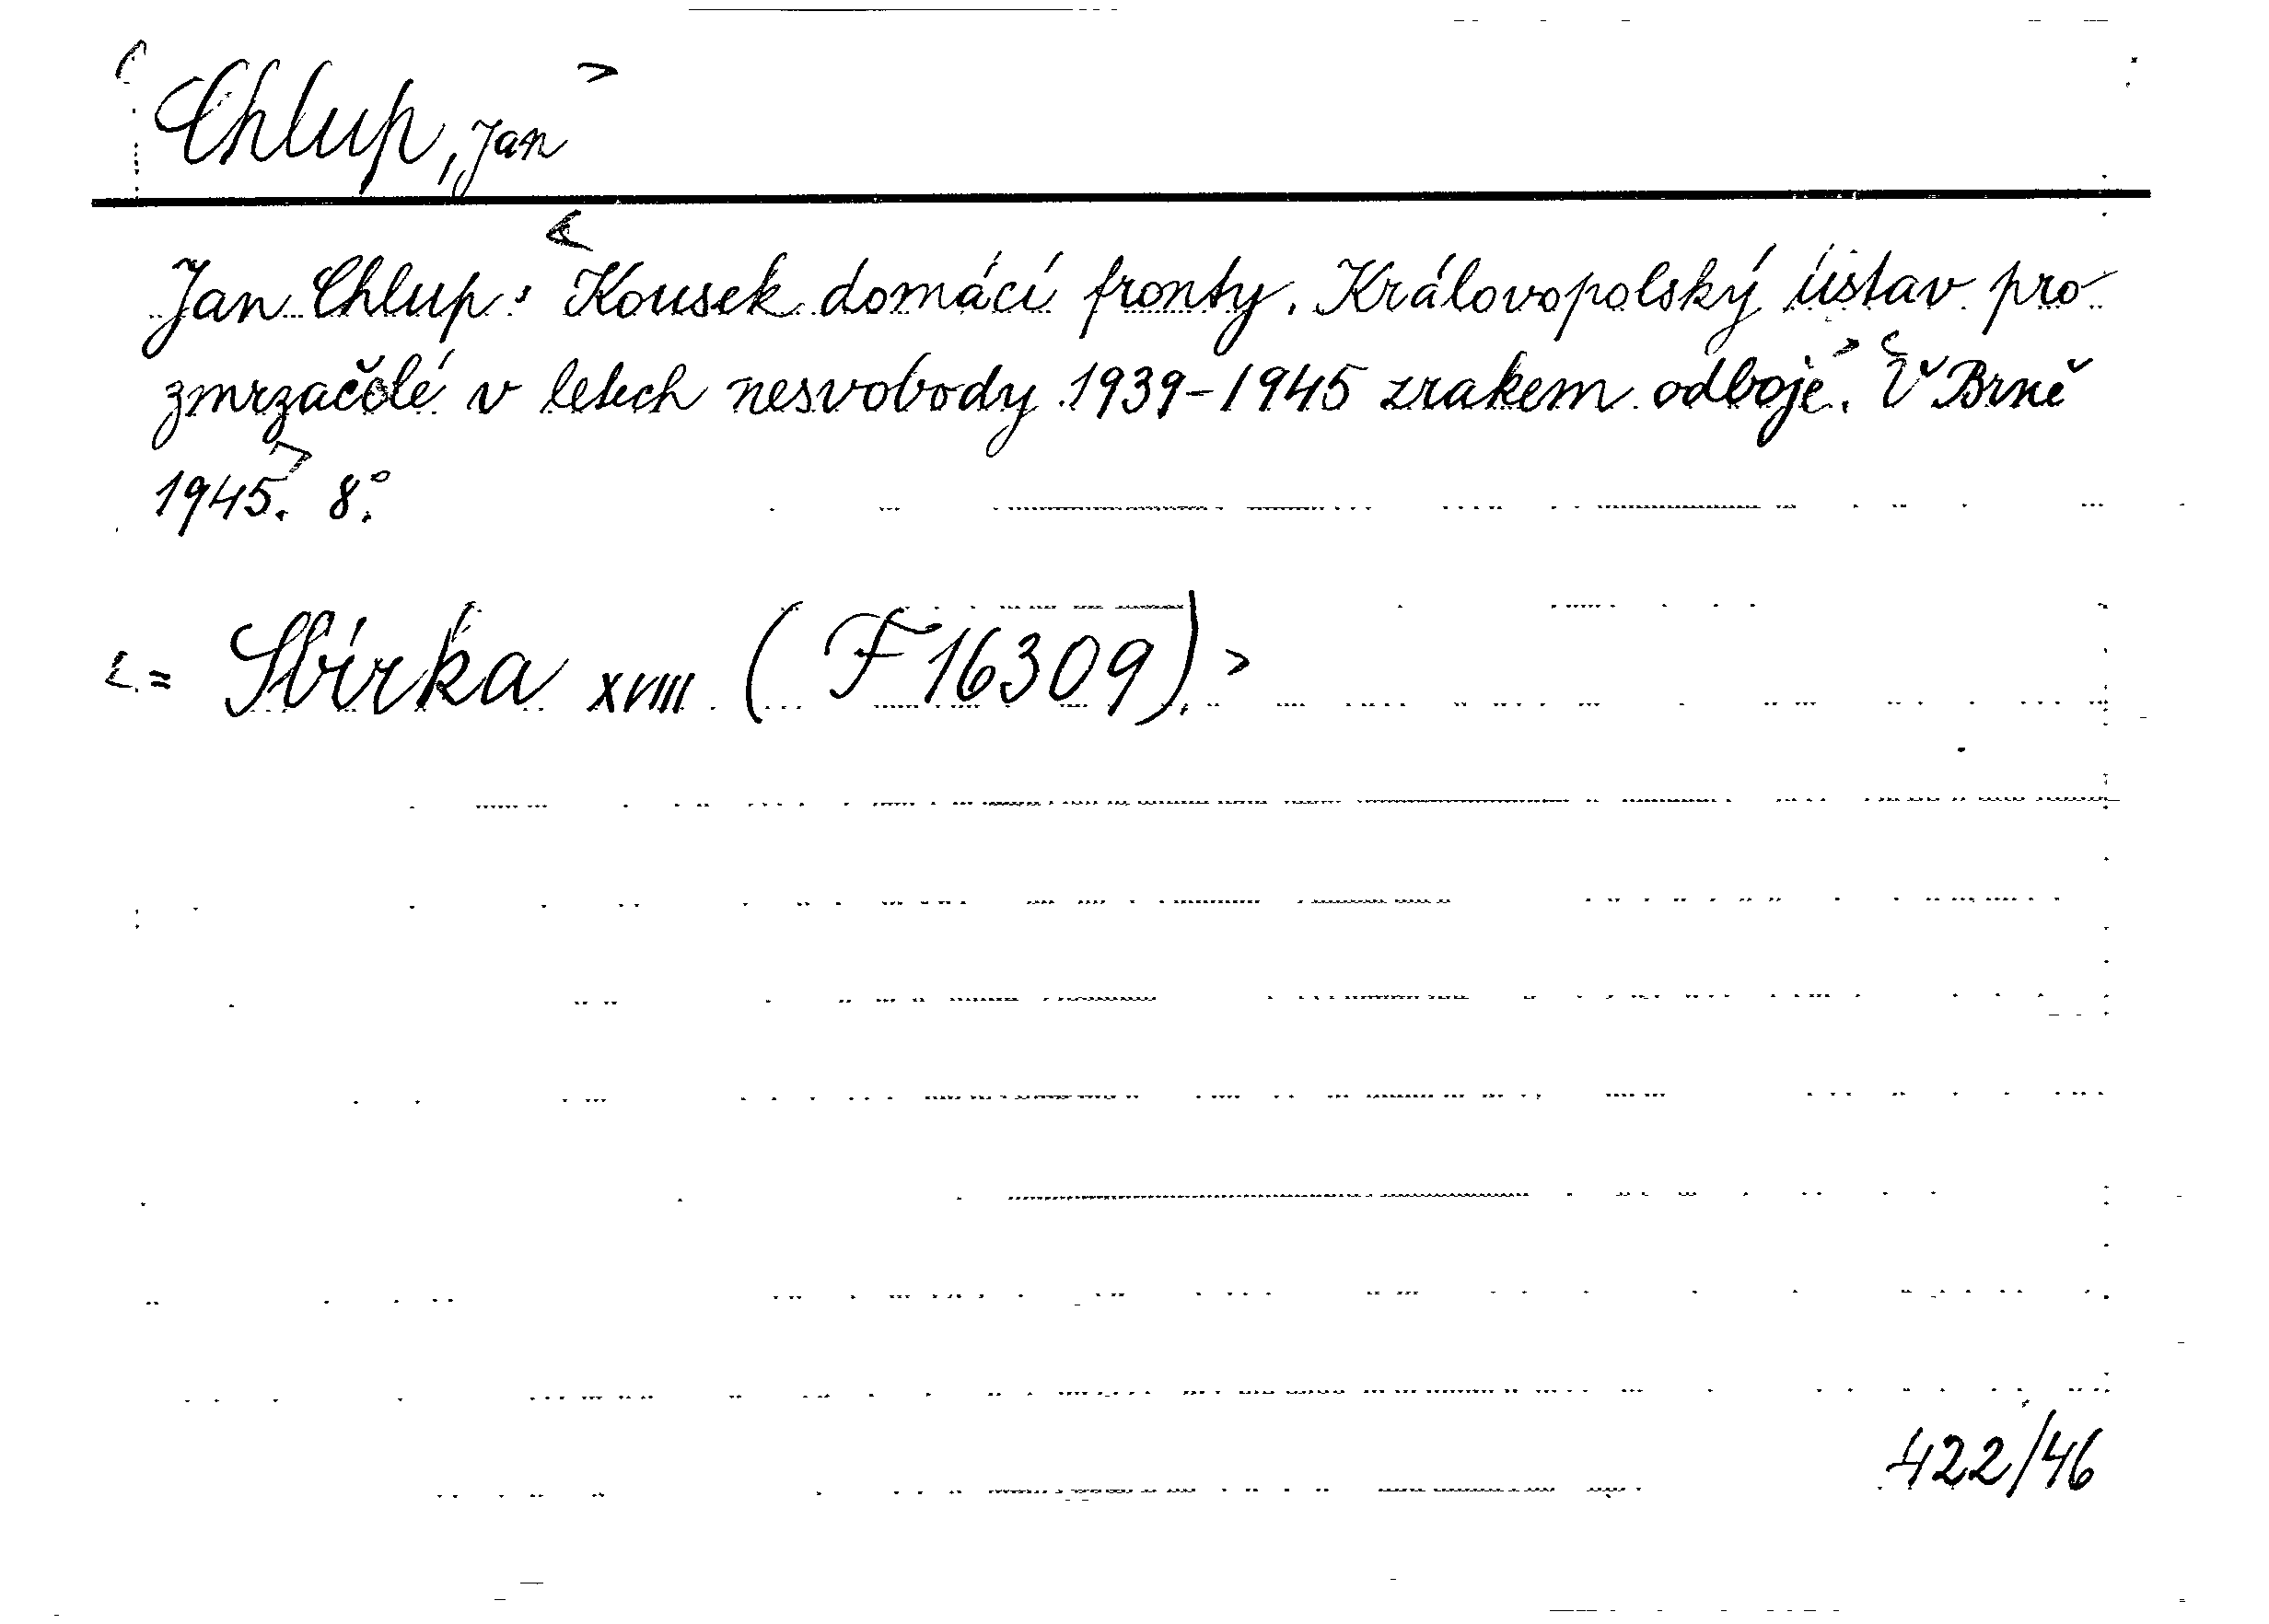 <Chlup, Jan>
Jan Chlup: <Kousek domácí fronty. Královopolský ústav pro
zmrzačélé v letech nesvobody 1939-1945 zrakem odboje.> <V Brně
1945.> 8°.
<= Sbírka XVIII (F 16309).>
422/46